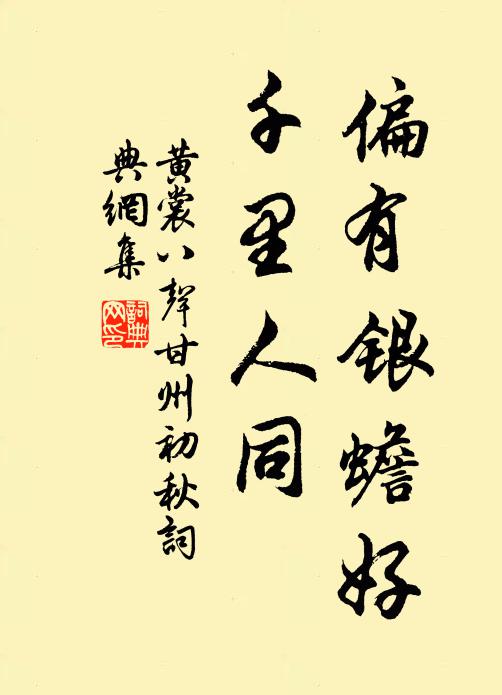 偏有銀蟾好
千里人同
黄裳八聲甘州初秋詞
典網集
詞典
网印